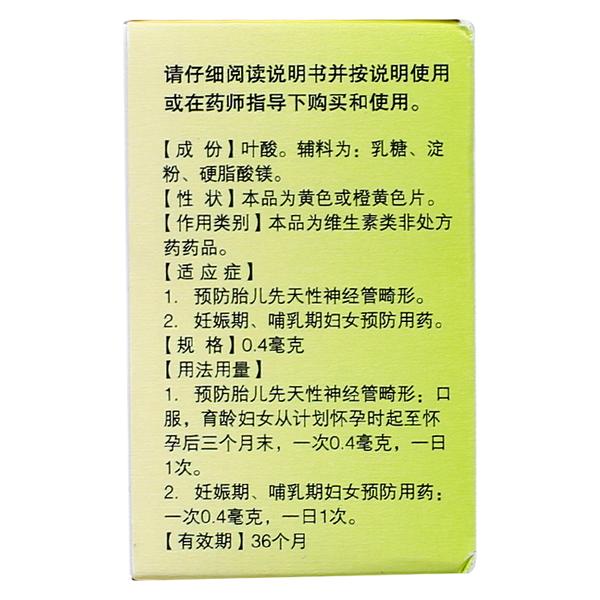 请仔细阅读说明书并按说明使用
或在药师指导下购买和使用。
【成 份】叶酸。辅料为：乳糖、淀
粉、硬脂酸镁。
【性 状】本品为黄色或橙黄色片。
【作用类别】本品为维生素类非处方
药药品。
【适应症】
1. 预防胎儿先天性神经管畸形。
2. 妊娠期、哺乳期妇女预防用药。
【规 格】0.4毫克
【用法用量】
1. 预防胎儿先天性神经管畸形：口
服，育龄妇女从计划怀孕时起至怀
孕后三个月末，一次0.4毫克，一日
1次。
2. 妊娠期、哺乳期妇女预防用药：
一次0.4毫克，一日1次。
【有效期】36个月